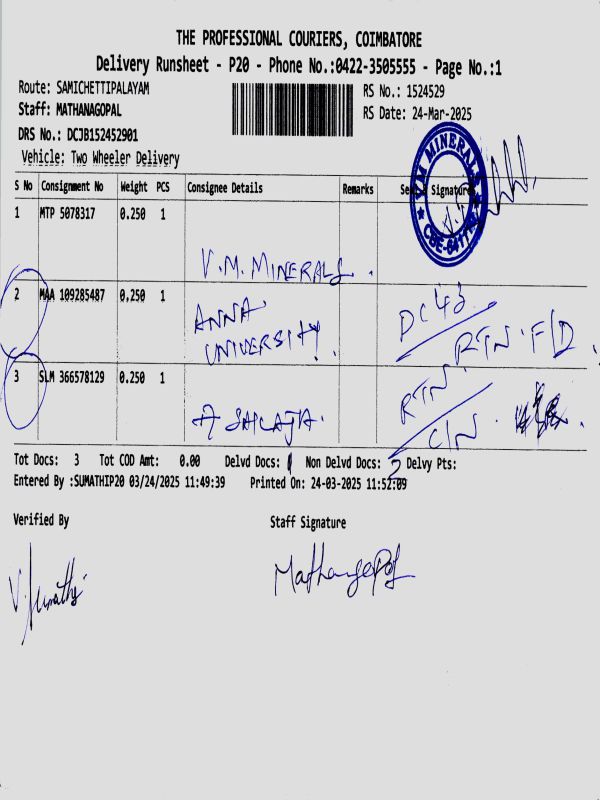 THE PROFESSIONAL COURIERS, COIMBATORE
Delivery Runsheet - P20 - Phone No.:0422-3505555 - Page No.:1
Route: SAMICHETTIPALAYAM
RS No.: 1524529
Staff: MATHANAGOPAL
RS Date: 24-Mar-2025
DRS No.: DCJB152452901
Vehicle: Two Wheeler Delivery
S No Consignment No Weight PCS Consignee Details Remarks Seal & Signature
V.M MINERALS
CBE-641
1 MTP 5078317 0.250 1
V.M. MINERALS.
2 MAA 109285487 0.250 1
ANNA UNIVERSITY.
DC43
RTN. F/D.
3 SLM 366578129 0.250 1
A SAILAJA.
RTN.
C/N.
Tot Docs: 3 Tot COD Amt: 0.00 Delvd Docs: 1 Non Delvd Docs: 2 Delvy Pts:
Entered By :SUMATHIP20 03/24/2025 11:49:39 Printed On: 24-03-2025 11:52:09
Verified By Staff Signature
V. Sumathi Mathanagopal